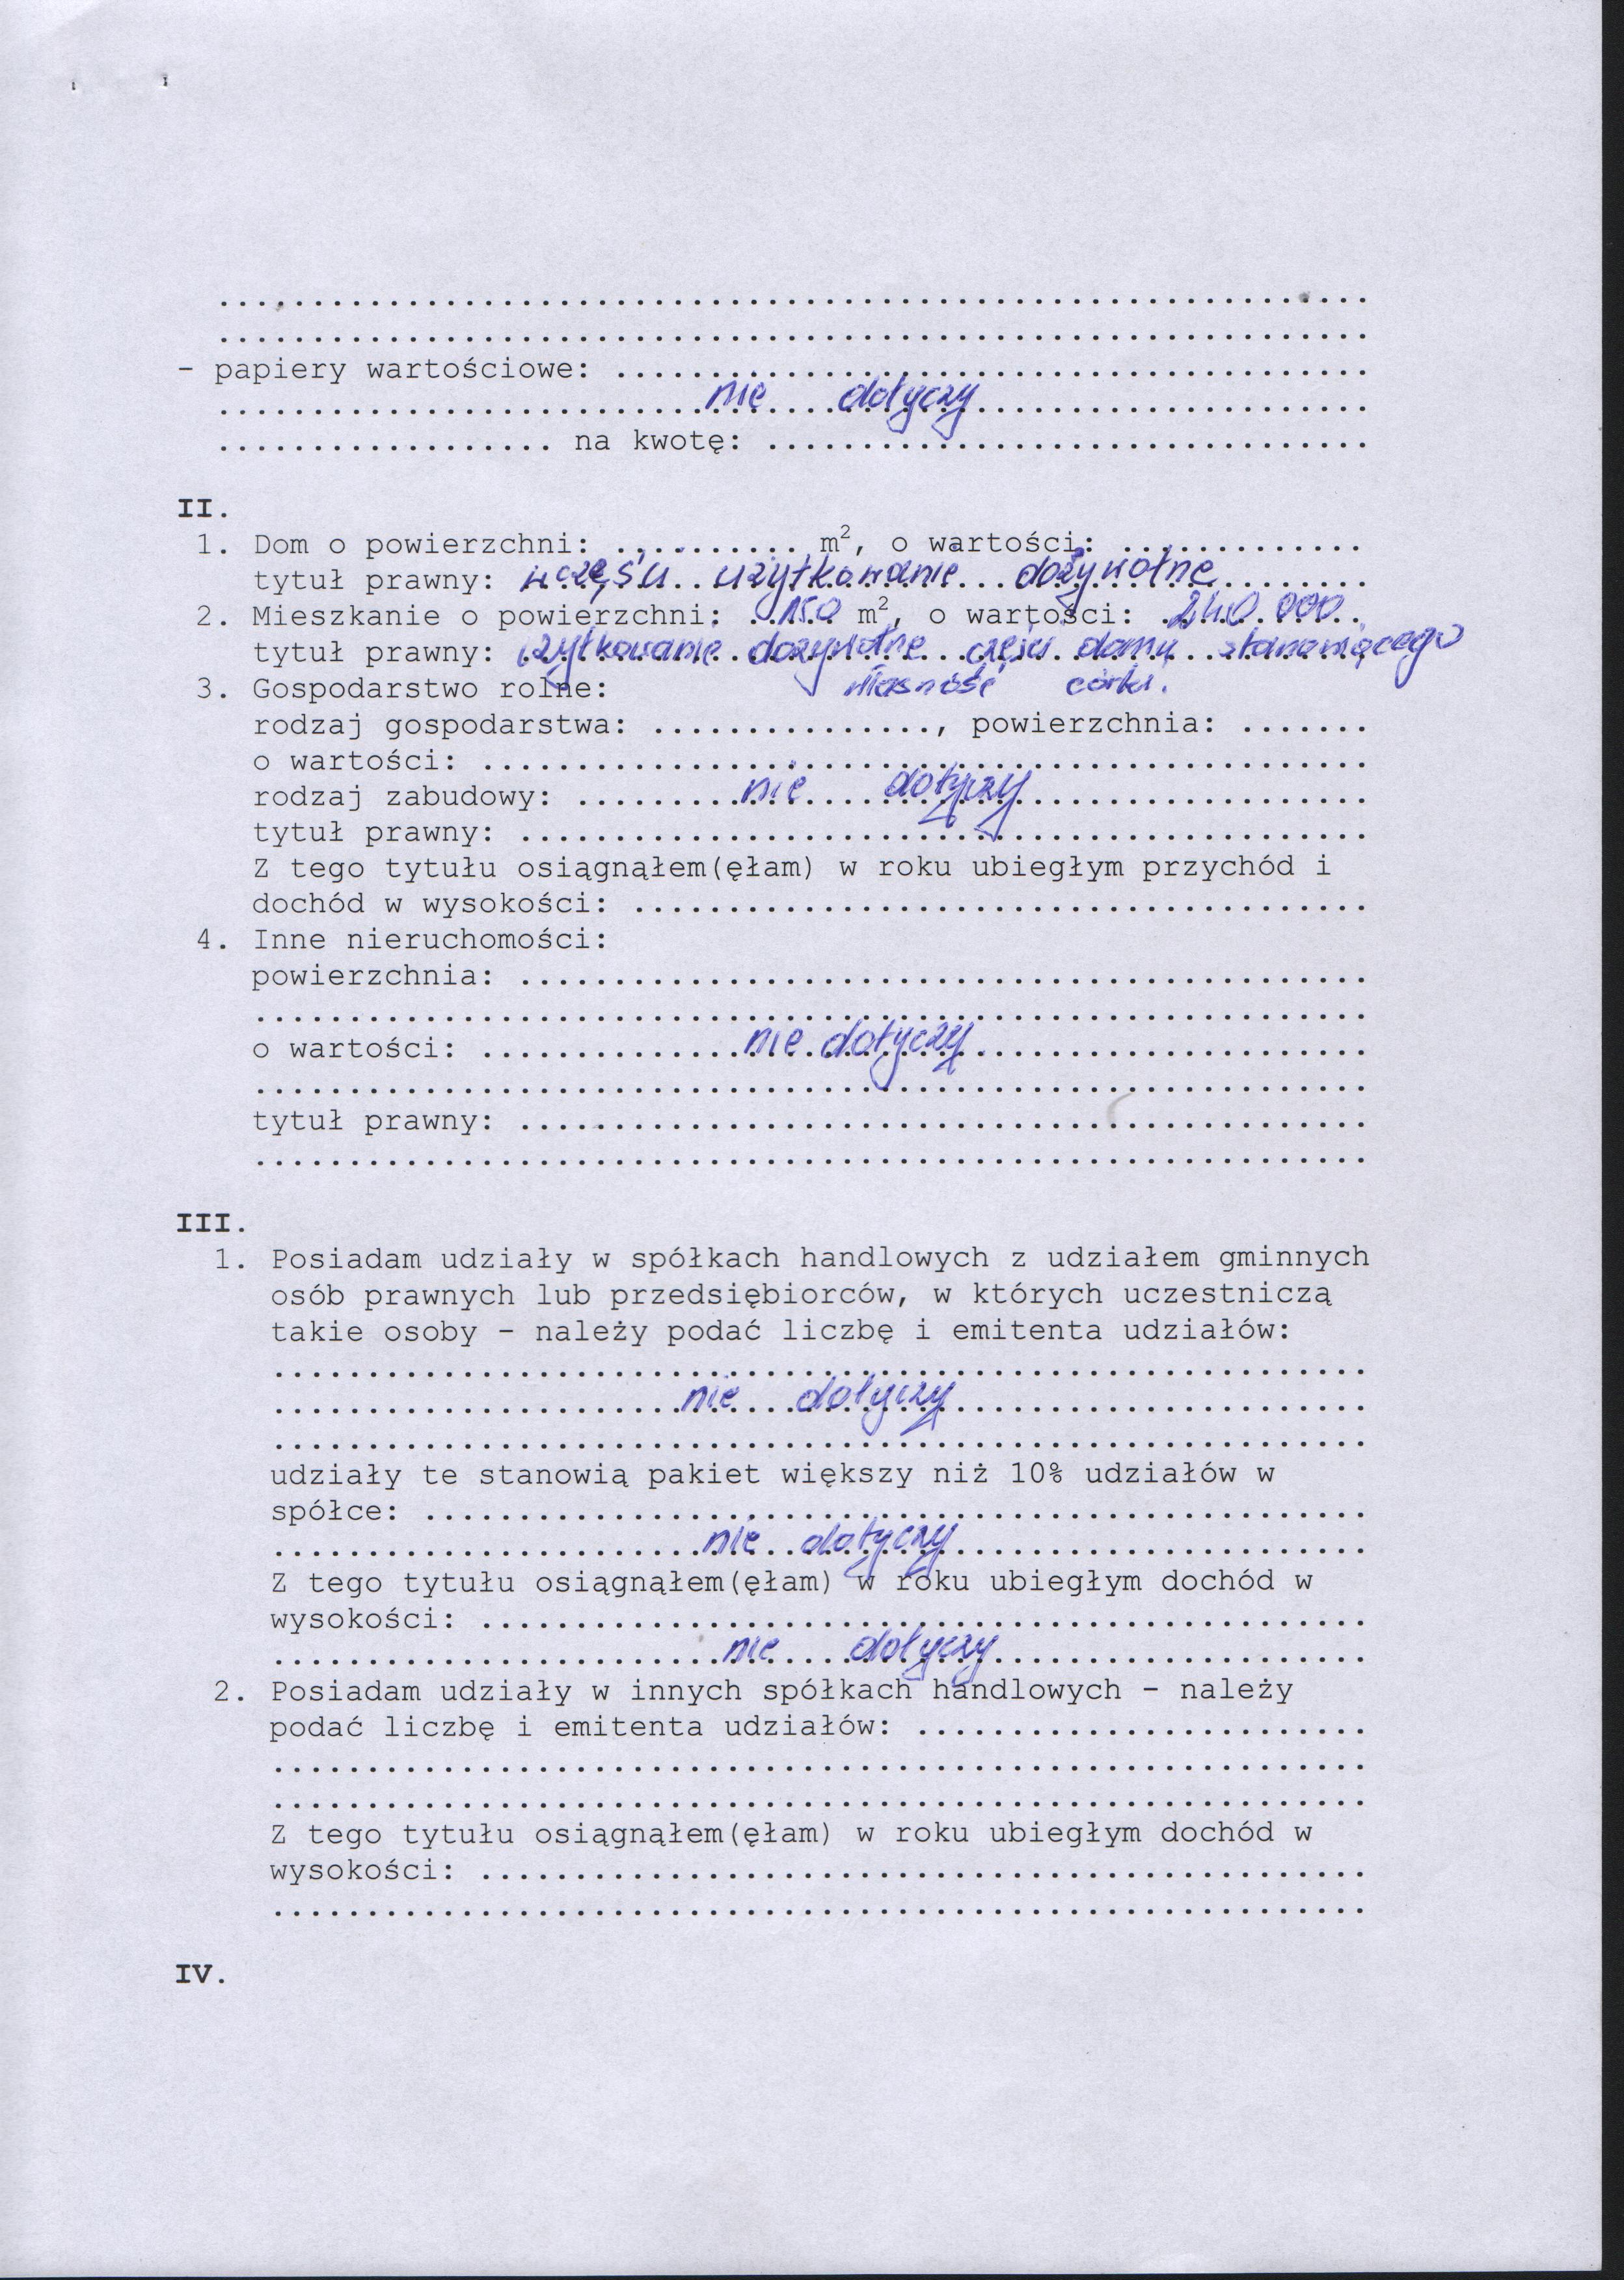 ................................................................
................................................................
- papiery wartościowe: ........................................
............................nie....dotyczy.....................
.................. na kwotę: ................................
II.
1. Dom o powierzchni: .......... m², o wartości: .............
tytuł prawny: w części użytkowanie dożywotne
2. Mieszkanie o powierzchni: 150 m², o wartości: 240.000
tytuł prawny: użytkowanie dożywotne części domu stanowiącego
własność córki.
3. Gospodarstwo rolne:
rodzaj gospodarstwa: ..............., powierzchnia: .......
o wartości: ...............................................
rodzaj zabudowy: nie dotyczy
tytuł prawny: .............................................
Z tego tytułu osiągnąłem(ęłam) w roku ubiegłym przychód i
dochód w wysokości: .......................................
4. Inne nieruchomości:
powierzchnia: .............................................
...........................................................
o wartości: nie dotyczy
...........................................................
tytuł prawny: .............................................
...........................................................
III.
1. Posiadam udziały w spółkach handlowych z udziałem gminnych
osób prawnych lub przedsiębiorców, w których uczestniczą
takie osoby - należy podać liczbę i emitenta udziałów:
..........................................................
nie dotyczy
..........................................................
udziały te stanowią pakiet większy niż 10% udziałów w
spółce: ..................................................
nie dotyczy
Z tego tytułu osiągnąłem(ęłam) w roku ubiegłym dochód w
wysokości: ...............................................
nie dotyczy
2. Posiadam udziały w innych spółkach handlowych - należy
podać liczbę i emitenta udziałów: ........................
..........................................................
..........................................................
Z tego tytułu osiągnąłem(ęłam) w roku ubiegłym dochód w
wysokości: ...............................................
..........................................................
IV.